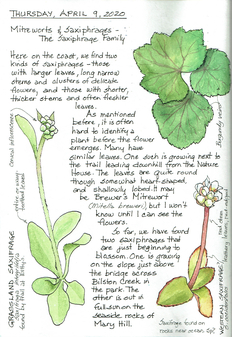 THURSDAY, APRIL 9, 2020
Mitreworts & Saxifrages -
The Saxifrage Family
Here on the coast, we find two
kinds of saxifrages - those
with larger leaves, long narrow
stems and clusters of delicate
flowers, and those with shorter,
thicker stems and often fleshier
leaves.
As mentioned
before, it is often
hard to identify a
plant before the flower
emerges. Many have
similar leaves. One such is growing next to
the trail leading downhill from the Nature
House. The leaves are quite round
though somewhat heart-shaped,
and shallowly lobed. It may
be Brewer's Mitrewort
(Mitella breweri), but I won't
know until I can see the
flowers.
So far, we have found
two saxifrages that
are just beginning to
blossom. One is growing
on the slope just above
the bridge across
Bilston Creek in
the park. The other
is out in
full sun on the
seaside rocks of
Mary Hill.
Conical inflorescence
GRASSLAND SAXIFRAGE
WESTERN SAXIFRAGE
Saxifrage found on
rocks near ocean